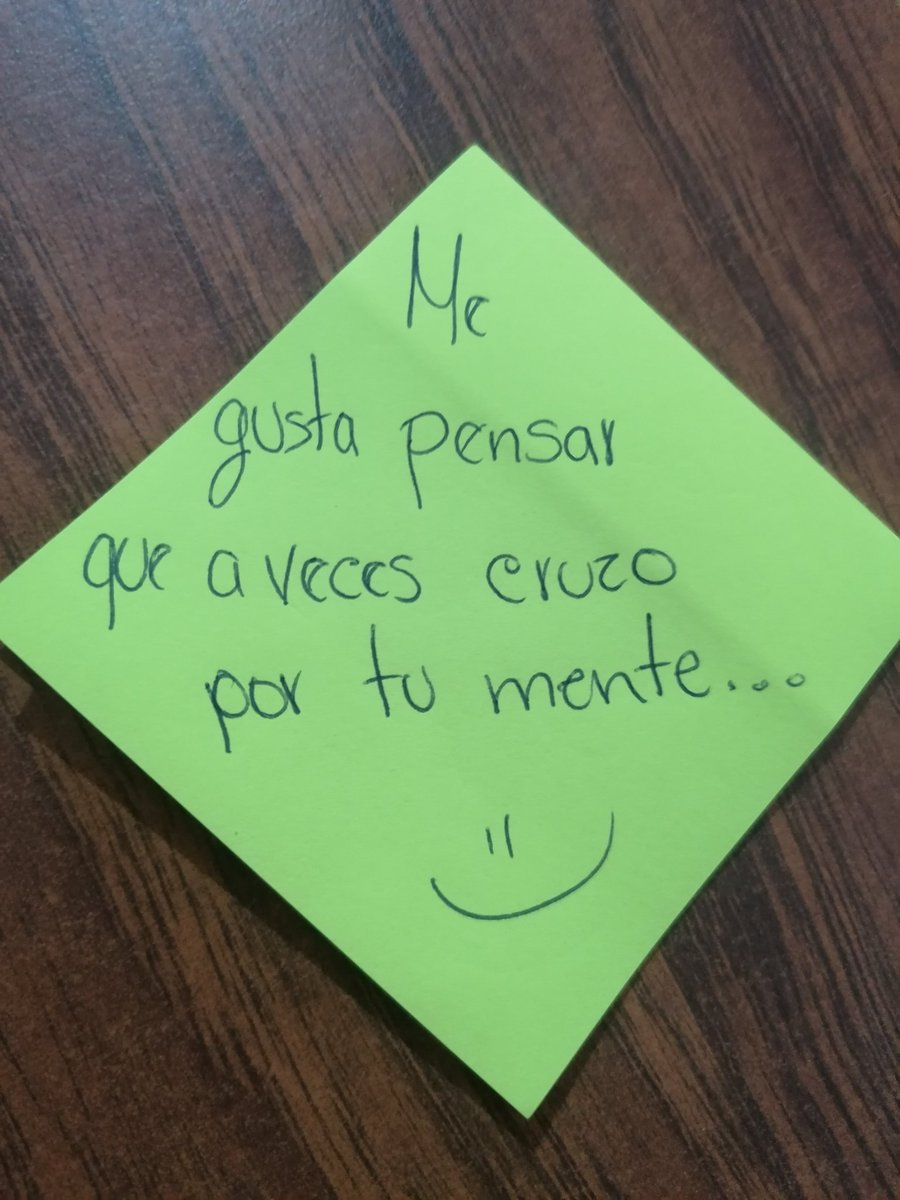 Me
gusta pensar
que a veces cruzo
por tu mente...